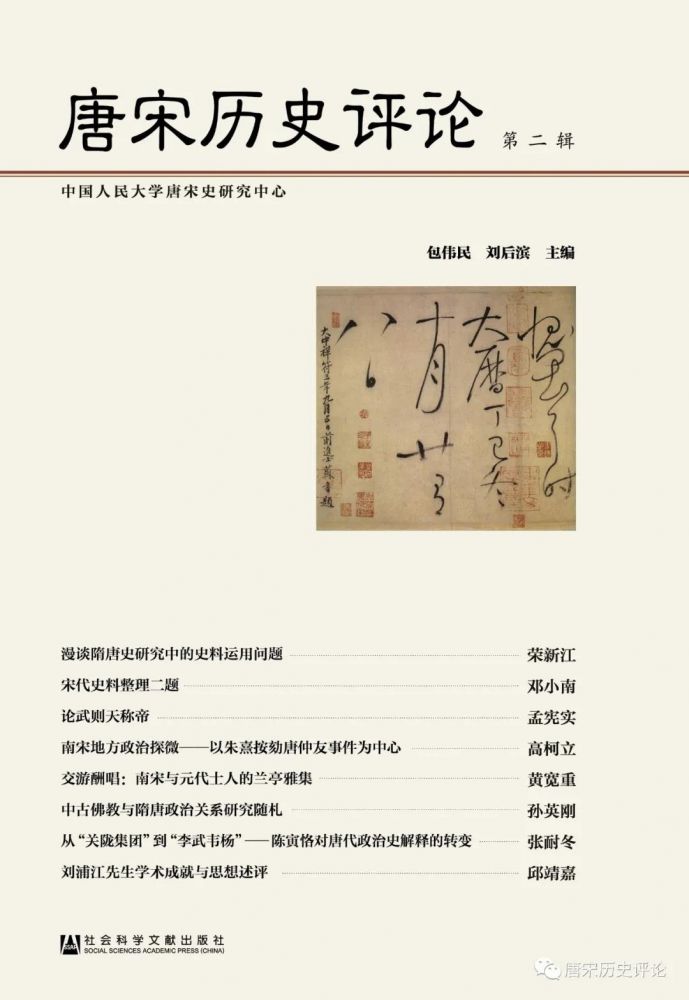 唐宋历史评论 第二辑
中国人民大学唐宋史研究中心
包伟民 刘后滨 主编
大历丁巳冬
十月廿
八日
漫谈隋唐史研究中的史料运用问题 荣新江
宋代史料整理二题 邓小南
论武则天称帝 孟宪实
南宋地方政治探微——以朱熹按劾唐仲友事件为中心 高柯立
交游酬唱：南宋与元代士人的兰亭雅集 黄宽重
中古佛教与隋唐政治关系研究随札 孙英刚
从“关陇集团”到“李武韦杨”——陈寅恪对唐代政治史解释的转变 张耐冬
刘浦江先生学术成就与思想述评 邱靖嘉
SSAP
社会科学文献出版社
SOCIAL SCIENCES ACADEMIC PRESS (CHINA)
唐宋历史评论